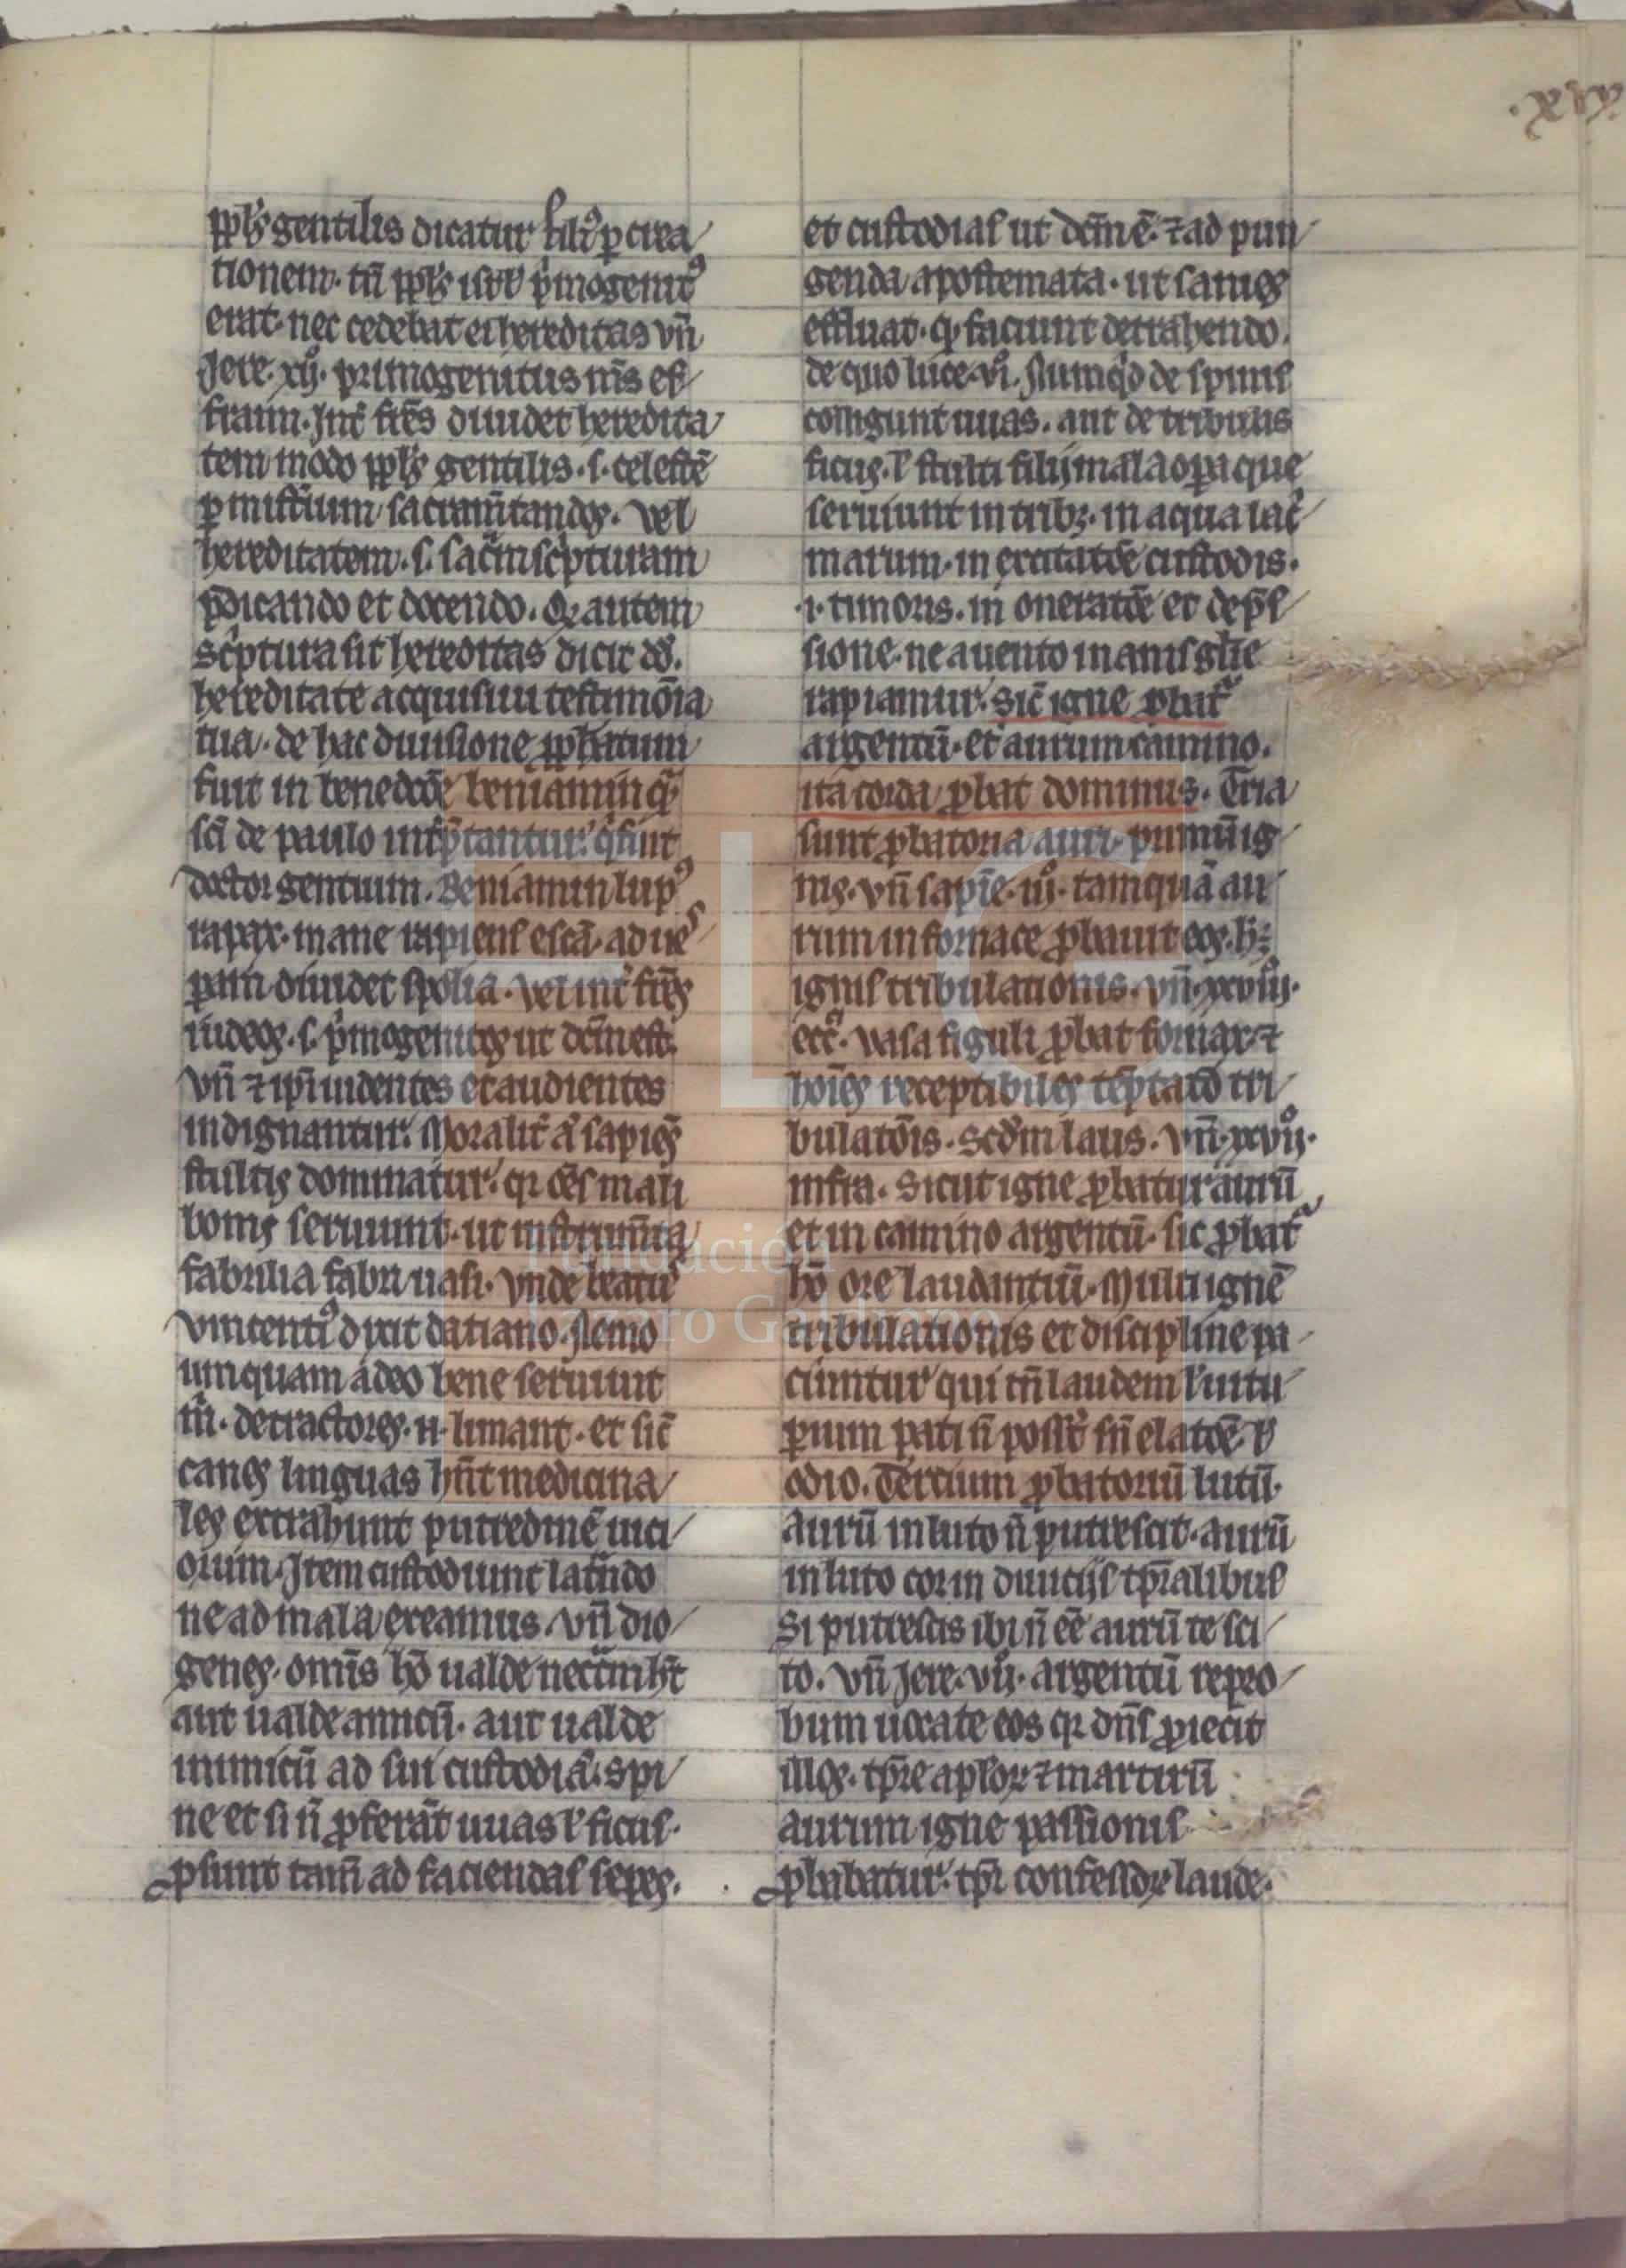 .xvx.
ppl's gentilis dicatur fili9 p crea/
tionem. tn̄ ppl's isrl' p'mogenit9
erat. nec cedebat ei hereditas vn̄
Jere. xxj. primogenitus m̄s ef/
fraim. Int' fr̄es diuidet heredita/
tem modo ppl's gentilis. s. celestē
p misterium sacram̄tandos. vel
hereditatem. s. sac̄m sc'pturam
p̄dicando et docendo. Q2 autem
sc'ptura sit hereditas dicit dd.
hereditate acquisiui testimōia
tua. de hac diuisione pphatum
fuit in benedcōe beniamin q̄
sc̄i de paulo int'p̄tantur. q' fuit
doctor gentium. Beniamin lup9
rapax. mane rapiens escā. ad ues/
pam diuidet spolia. vel int' fr̄es
iudeos. s. p'mogenitos ut dc̄m est.
vn̄ ⁊ ip̄i uidentes et audientes
indignantur. Moralit' a' sapiēs
stultis dominatur. q2 oēs mali
bonis seruiunt. ut instrum̄ta
fabrilia fabri uasi. vnde beatus
vincenti9 dixit datiano. Nemo
umquam adeo bene seruiuit
m̄. detractores. n. limant. et sic̄
canes linguas hn̄t medicina/
les extrahunt putredinē uici/
orum. Item custodiunt latrādo
ne ad mala exeamus. vn̄ dio/
genes. om̄s hō ualde nec̄m h̄t
aut ualde amicū. aut ualde
inimicū ad sui custodiā. spi/
ne et si n̄ pferāt uuas l' ficus.
psunt tam̄ ad faciendas sepes.
et custodias ut dc̄m ē. ⁊ ad pun/
genda apostemata. ut sanies
effluat. q' faciunt detrahendo.
de quo luce. vi. Numq'd de spinis
colligunt uuas. aut de tribulis
ficus. l' stulti filij mala opa que
seruiunt in trib3. in aqua lac'/
marum. in excitatōe custodis.
.i. timoris. in oneratōe et dep̄s/
sione. ne a uento inanis gl'ie
rapiamur. Sic̄ igne pbat'
argentū. et aurum camino.
ita corda pbat dominus. Tria
sunt pbatoria auri. primū ig/
nis. vn̄ sapīe. iij. tamquā au/
rum in fornace pbauit eos. h'
ignis tribulationis. vn̄. xxvij.
ecc'. vasa figuli pbat fornax. ⁊
hoīes receptibiles tēptatō tri/
bulatōis. Scd'm laus. vn̄. xxvij.
infra. Sicut igne pbatur aurū
et in camino argentū. sic pbat'
hō ore laudantiū. Multi ignē
tribulationis et discipline pa/
ciuntur qui tn̄ laudem l' uitu/
perium pati n̄ poss̄t sn̄ elatōe. l'
odio. Tertium pbatoriū lutū.
aurū in luto n̄ putrescit. aurū
in luto cor in diuicijs tp̄ralibus
Si putrescis ibi n̄ eē aurū te sci/
to. vn̄ Jere. vij. argentū repro/
bum uocate eos q2 dn̄s piecit
illos. tp̄re aplor ⁊ martirū
aurum igne passionis
pbabatur. tpr̄ confessor laude.
Fundación
Lázaro Galdiano
FLG